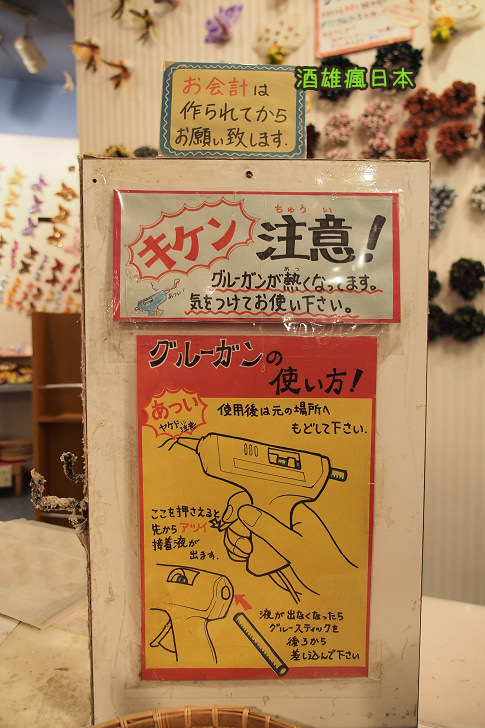 酒雄瘋日本
お会計は
作られてから
お願い致します.
キケン
ちゅうい
注意!
あつい!
グルーガンが熱くなってます。
あつ
気をつけてお使い下さい。
グルーガンの
使い方!
あつい
ヤケド注意
使用後は元の場所へ
もどして下さい.
ここを押さえると
先からアツイ
接着液が
出ます.
液が出なくなったら
グルースティックを
後ろから
差し込んで下さい